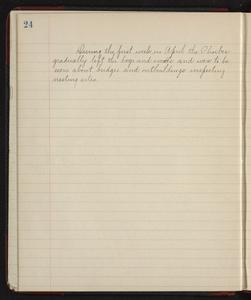 24
During the first week in April the Phoebes
gradually left the bogs and woods and were to be
seen about bridges and outbuildings inspecting
nesting sites.